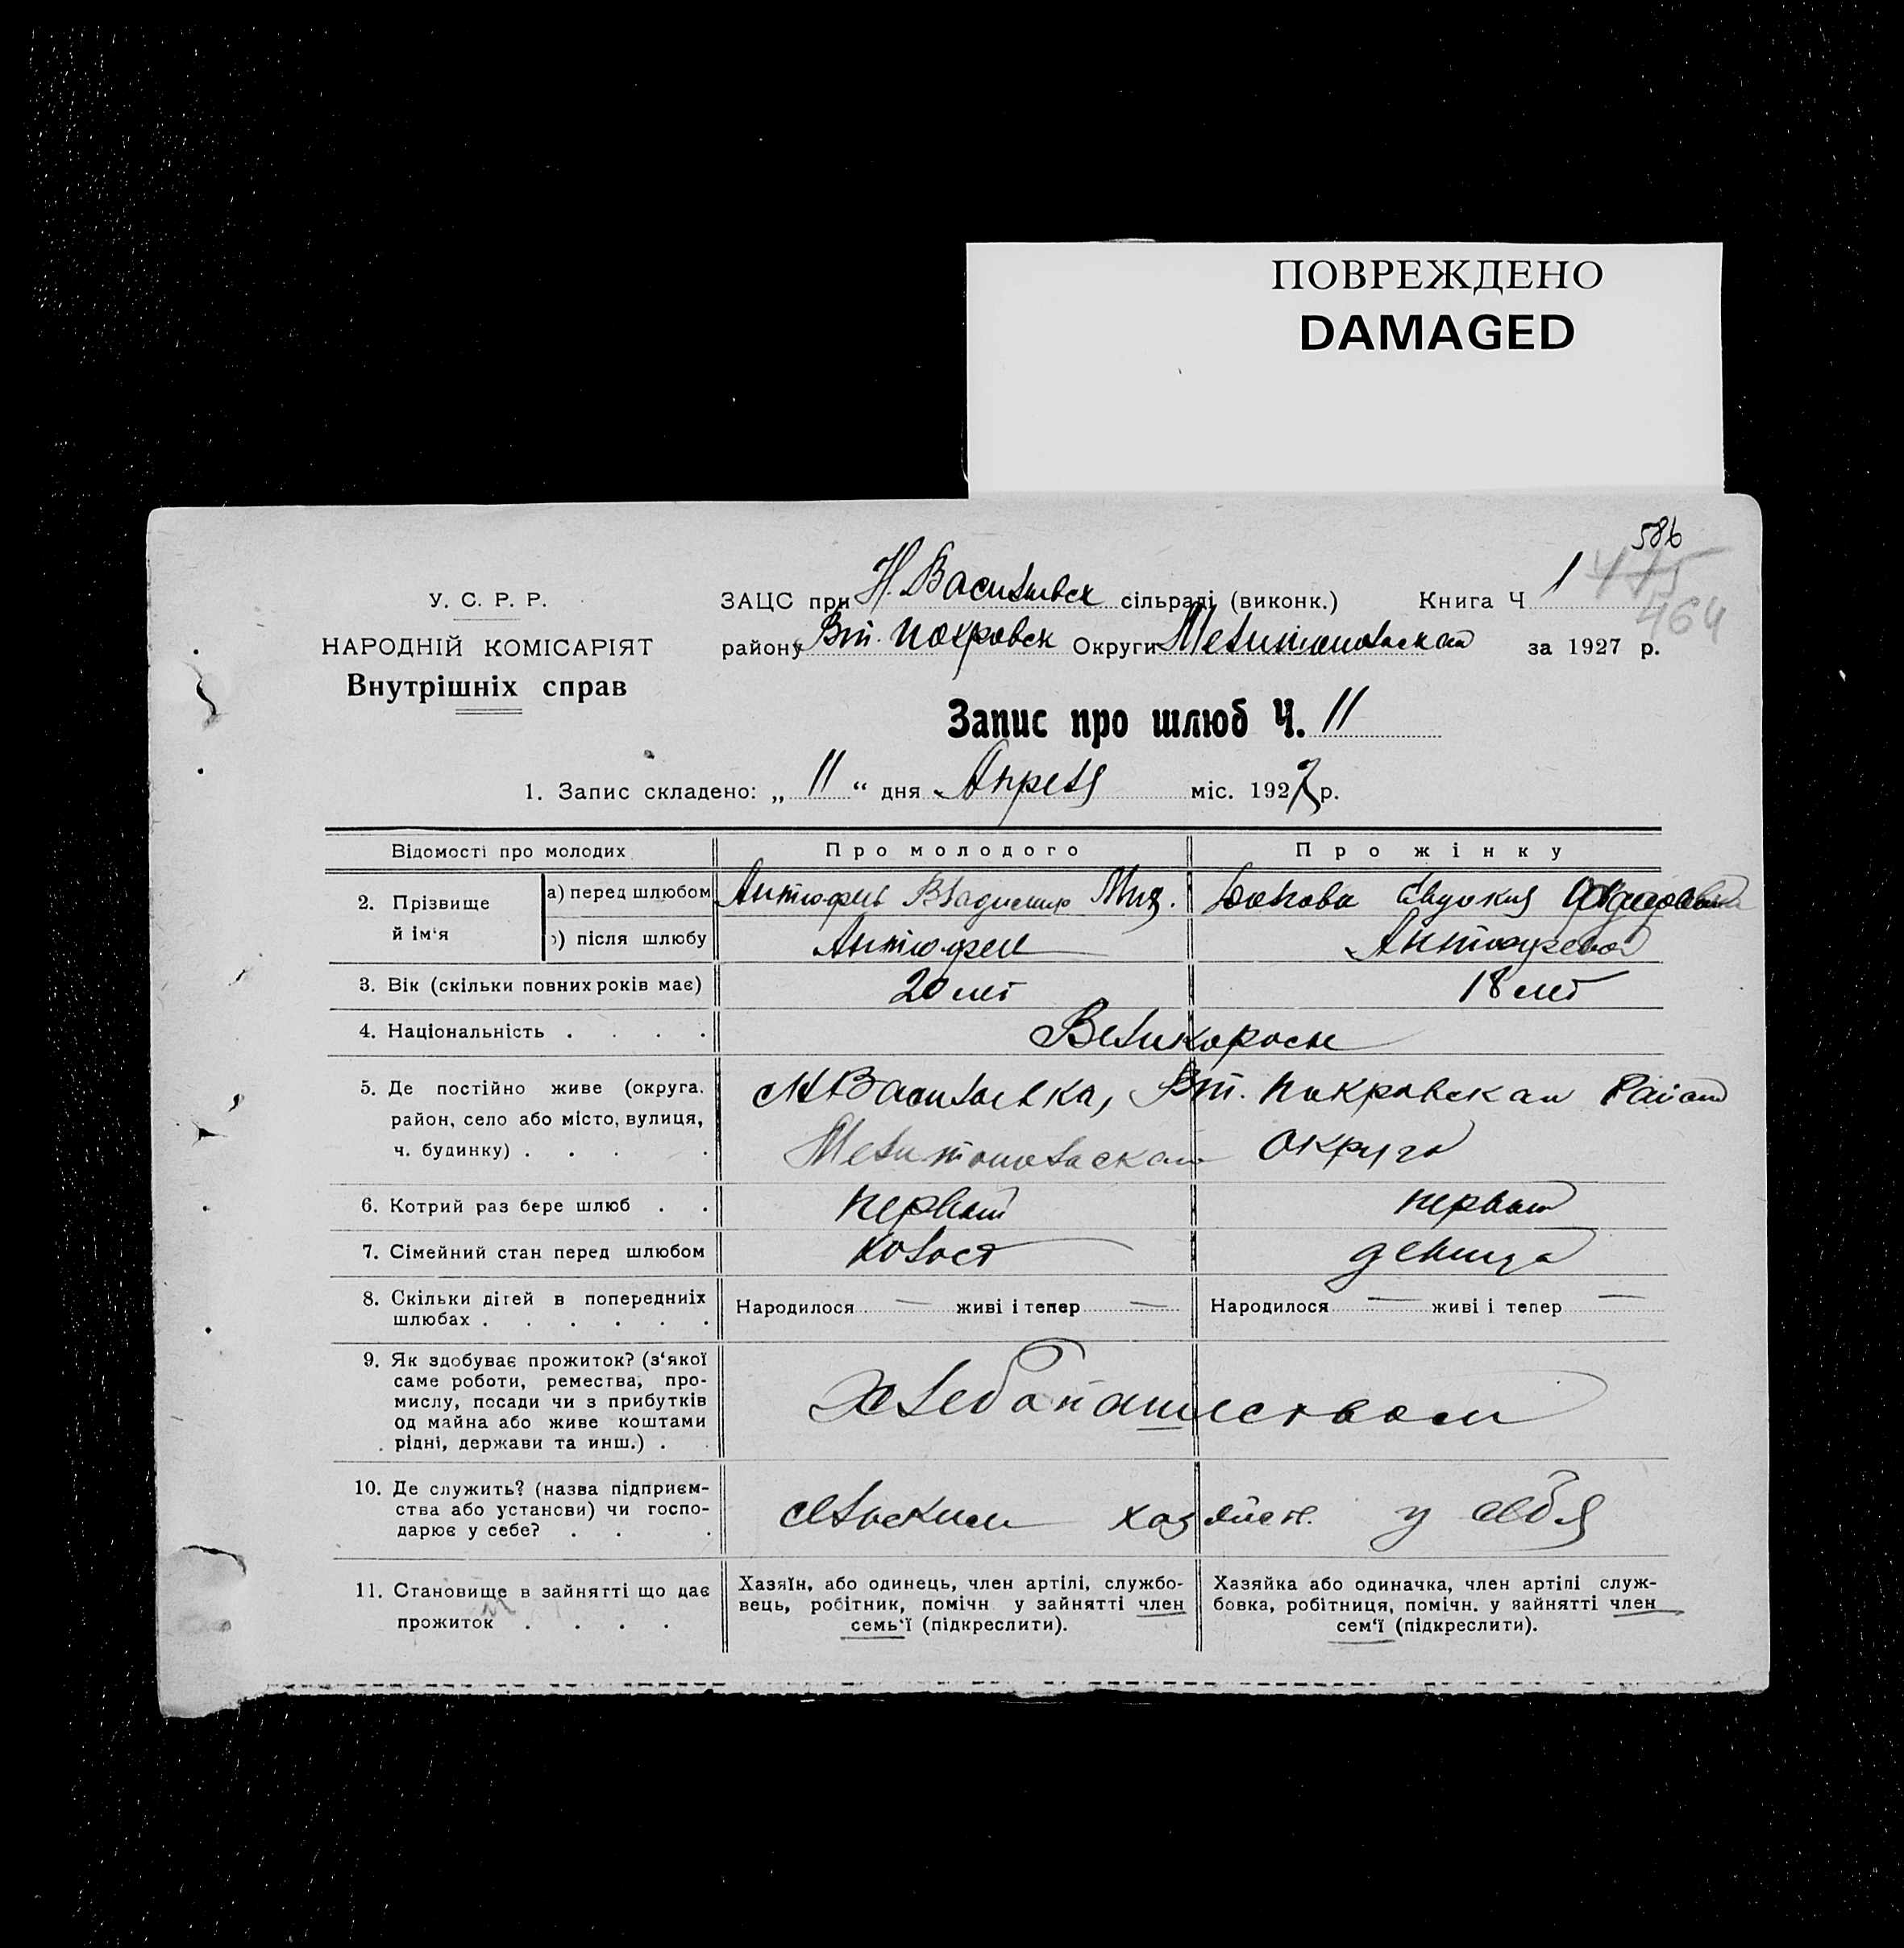 ПОВРЕЖДЕНО
DAMAGED
586
У. С. Р. Р.
НАРОДНІЙ КОМІСАРІЯТ
Внутрішніх справ
ЗАЦС при Н. Васильевск сільраді (виконк.) Книга Ч 1 475
464
району Вт. Покровск Округи Мелитопольской за 1927 р.
Запис про шлюб Ч. 11
1. Запис складено: „ 11 “ дня Апреля міс. 1927 р.
Відомості про молодих Про молодого Про жінку
2. Прізвище й ім‘я
а) перед шлюбом Антюфев Владимир Мих. Евдокия
) після шлюбу Антюфеев Антюфеева
3. Вік (скільки повних років має) 20 лет 18 лет
4. Національність . . . . Великороссы
5. Де постійно живе (округа. район, село або місто, вулиця, ч. будинку) . . . .
Н Васильевка, Вт. Покровскаи Раиан
Мелитопольскаи округа
6. Котрий раз бере шлюб . . первый первый
7. Сімейний стан перед шлюбом холост девица
8. Скільки дітей в попередниіх шлюбах . . . . . . Народилося — живі і тепер — Народилося — живі і тепер —
9. Як здобуває прожиток? (з‘якої
саме роботи, ремества, про-
мислу, посади чи з прибутків
од майна або живе коштами
рідні, держави та инш.) . .
хлебапашеством
10. Де служить? (назва підприєм-
ства або установи) чи госпо-
дарює у себе? . . .
сльским хозяйств. у себя
11. Становище в зайнятті що дає
прожиток . . . .
Хазяїн, або одинець, член артілі, службо-
вець, робітник, помічн у зайнятті член
семь‘ї (підкреслити).
Хазяйка або одиначка, член артілі служ-
бовка, робітниця, помічн. у зайнятті член
сем‘ї (підкреслити).